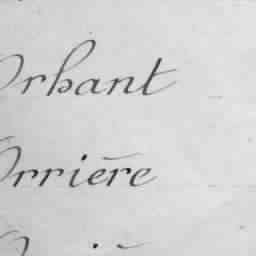 Orhant
Orrière